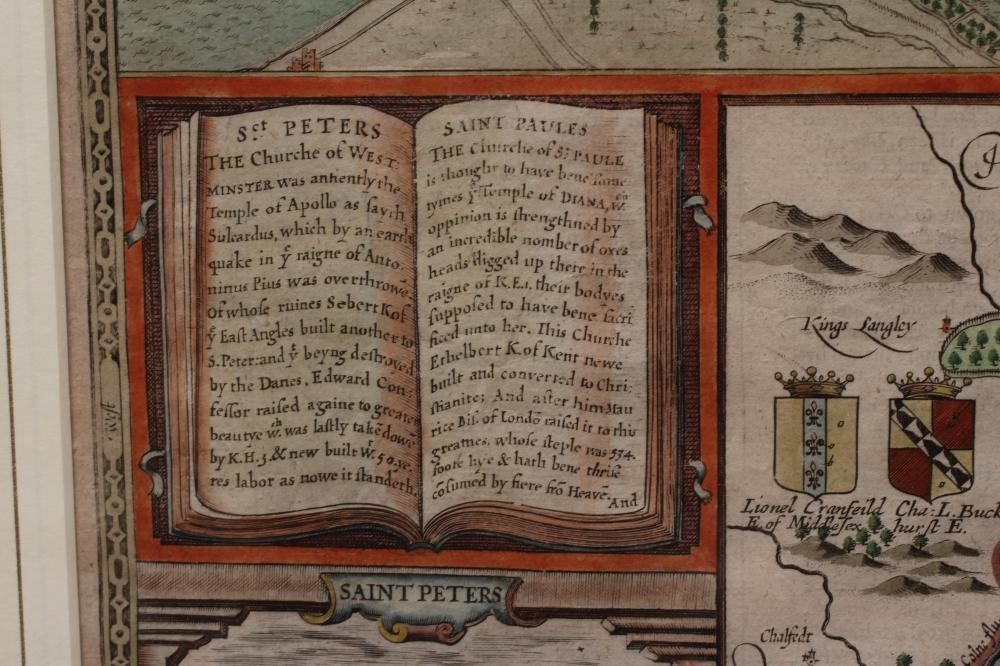 Sct PETERS
THE Churche of WEST
MINSTER was antiently the
Temple of Apollo as sayth
Sulcardus, which by an earth
quake in yᵉ raigne of Anto:
ninus Pius was overthrowē
Of whose ruines Sebert K of
yᵉ East Angles built another to
S. Peter: and yᵉ beyng destroyed
by the Danes, Edward Con
fessor raised againe to greater
beautye wᶜʰ was lastly takē dowē
by K.H.3. & new built wᵗ 50. ye,
res labor as nowe it standeth.
SAINT PAULES
THE Churche of Sᵗ PAULE
is thought to have bene some
tymes yᵉ Temple of DIANA, wᶜʰ
oppinion is strengthned by
an incredible nomber of oxes
heads digged up there in the
raigne of K.E.1. their bodyes
supposed to have bene sacri
ficed unto her. This Churche
Ethelbert K. of Kent newe
built and converted to Chri:
stianite; And after him Mau
rice Bis. of Londō raised it to this
greatnes, whose steple was 534.
foote hye & hath bene thrise
cōsumed by fiere frō Heavē. And
SAINT PETERS
West
Kings Langley
Lionel Cranfeild
E. of Midlesex
Cha: L. Buck
hurst E.
Chalfedt
Colne flu